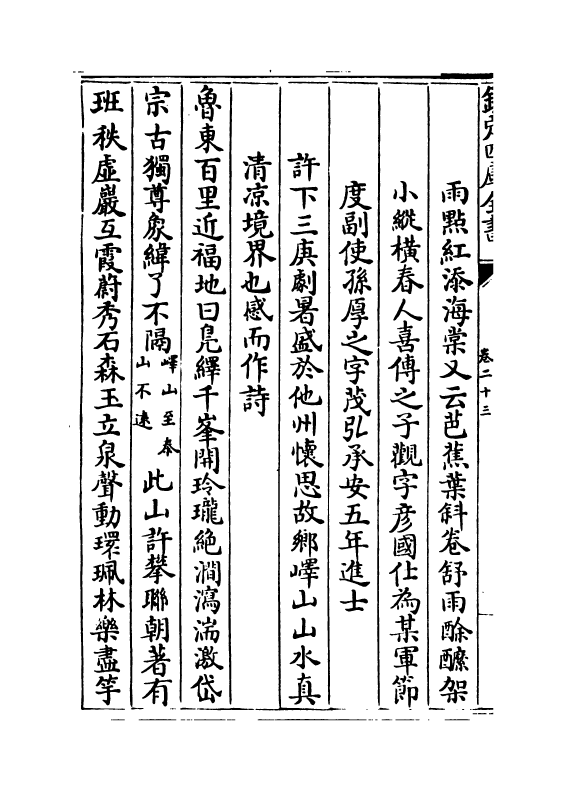 欽定四庫全書
卷二十三
雨點紅添海棠又云芭蕉葉斜卷舒雨酴醿架
小縱橫春人喜傳之子觀字彦國仕為某軍節
度副使孫厚之字茂弘承安五年進士
許下三庚劇暑盛於他州懷思故鄉嶧山山水真
清凉境界也感而作詩
魯東百里近福地曰鳬繹千峯開玲瓏絶澗瀉湍激岱
宗古獨尊象緯了不隔嶧山至泰山不遠此山許攀聯朝著有
班秩虛巖互霞蔚秀石森玉立泉聲動環珮林樂盡竽